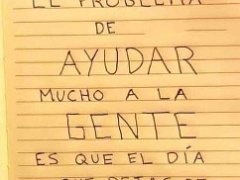 EL PROBLEMA
DE
AYUDAR
MUCHO A LA
GENTE
ES QUE EL DÍA
QUE DEJAS DE